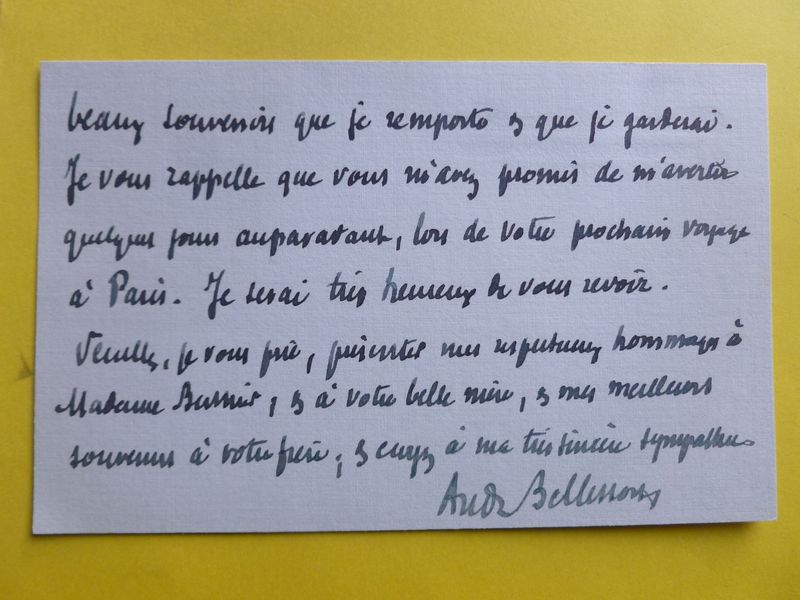 beaux souvenirs que je remporte & que je garderai.
Je vous rappelle que vous m'avez promis de m'avertir
quelques jours auparavant, lors de votre prochain voyage
à Paris. Je serai très heureux de vous revoir.
Veuillez, je vous prie, présenter mes respectueux hommages à
Madame & à votre belle mère, & mes meilleurs
souvenirs à votre frère; & croyez à ma très sincère sympathie.
André Bellessort